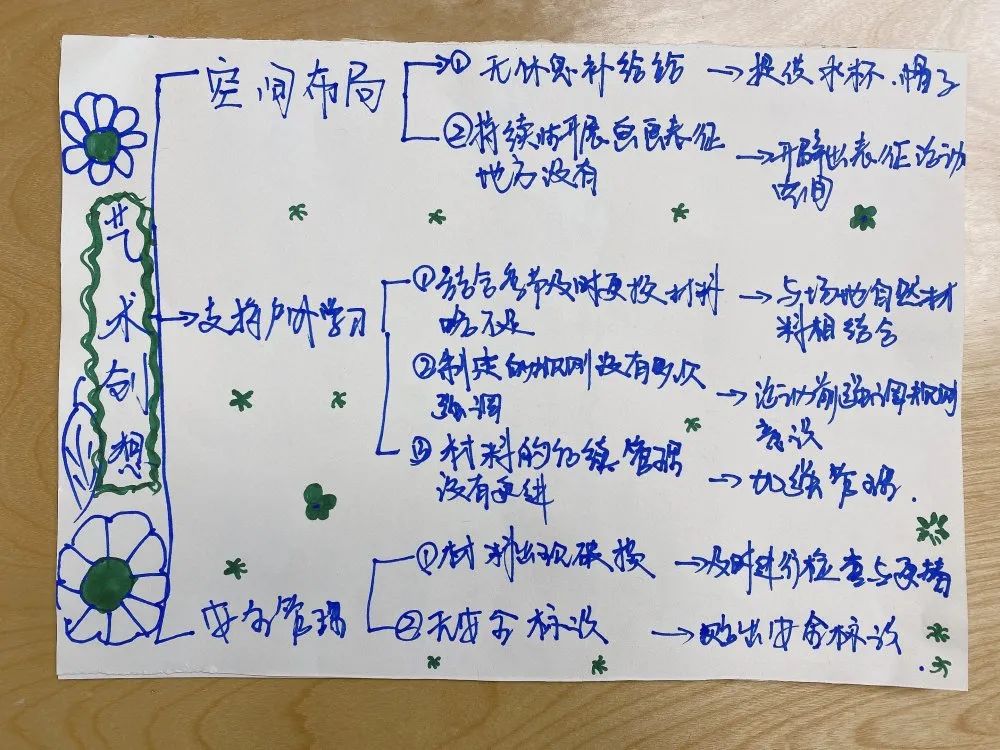 艺术创想
空间布局
① 无休息补给给 → 提供水杯、帽子
② 持续性开展画画表征
地方没有
→ 开辟出表征活动
空间
→ 支持户外学习
① 结合季节及时更换材料
不足
→ 与场地自然材
料相结合
② 制定的规则没有多次
强调
→ 活动前强调规则
意识
③ 材料的后续管理
没有跟进
→ 加强管理.
安全管理
① 材料出现破损 → 及时进行检查与更替
② 无安全标识 → 贴出安全标识